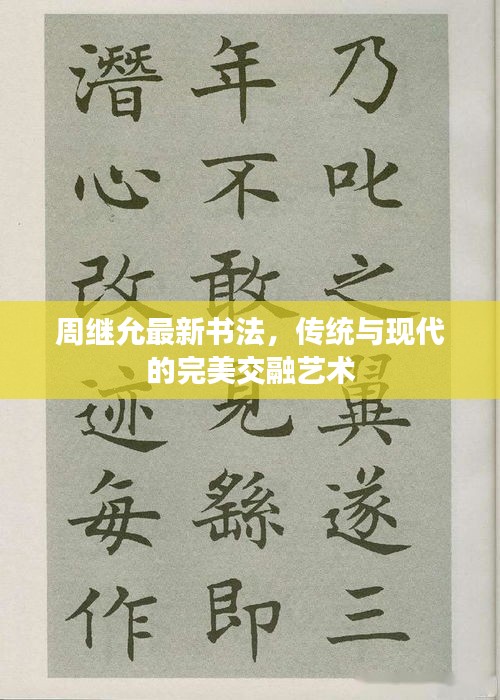 周继允最新书法，传统与现代
的完美交融艺术
乃叱之翼遂三
年不敢見繇即
潛心改迹每作